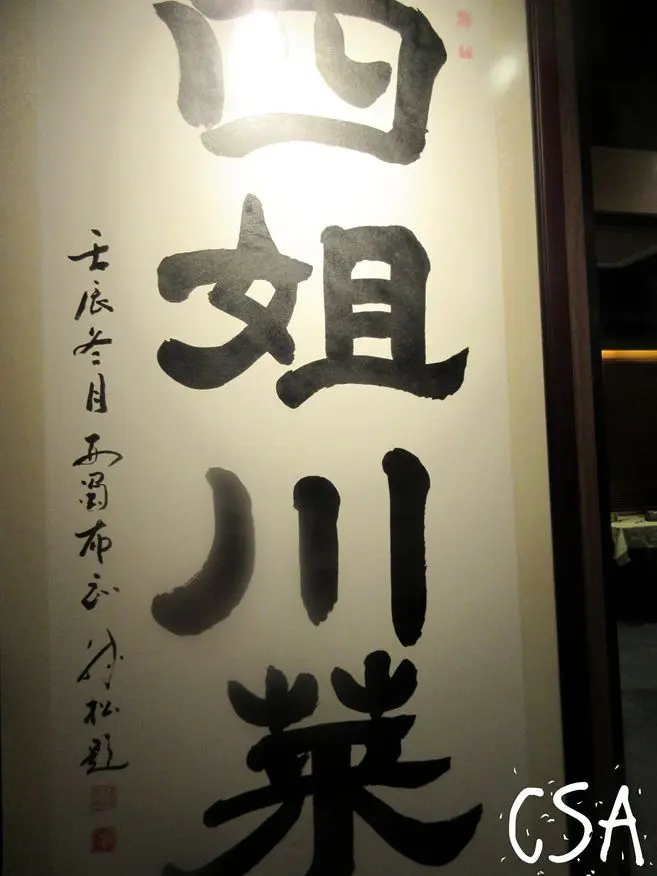 四姐川菜
壬辰冬月西蜀布衣 松題
CSA